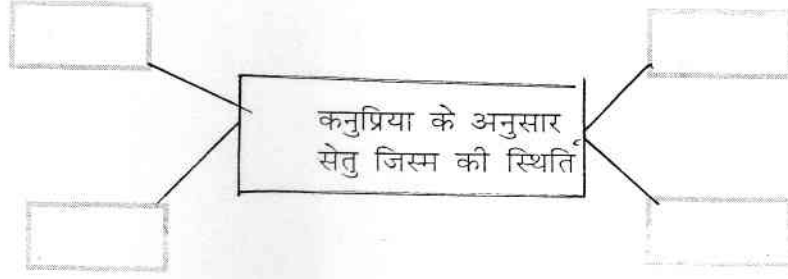 कनुप्रिया के अनुसार
सेतु जिस्म की स्थिति